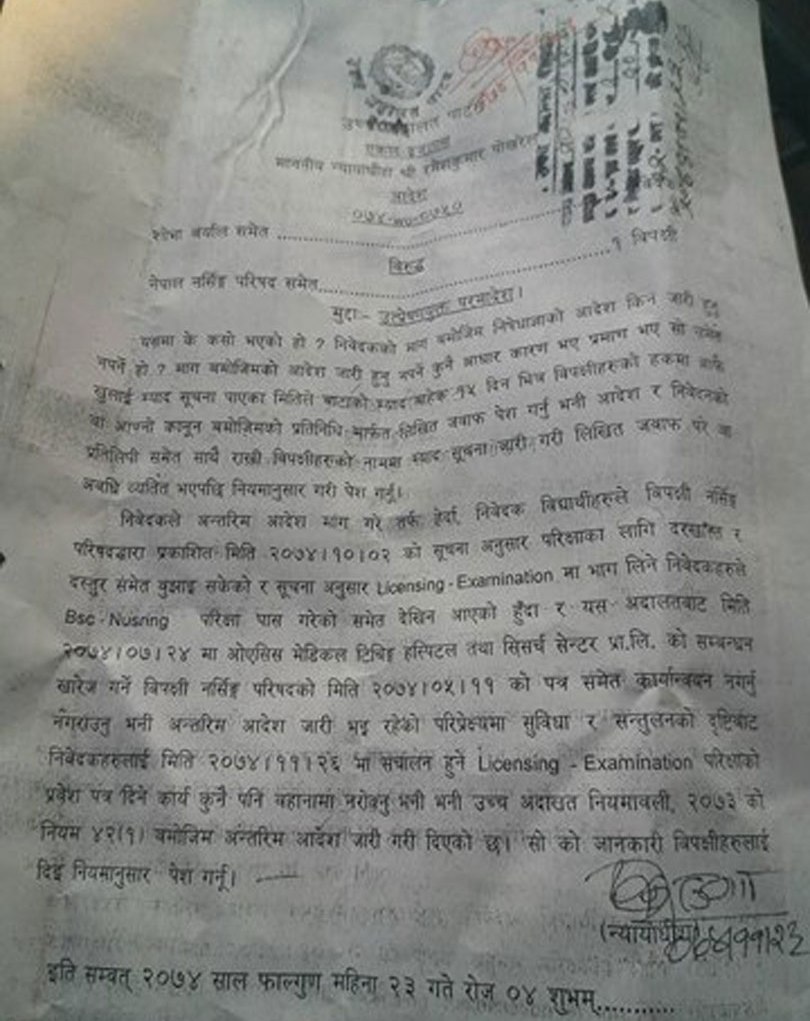 उच्च अदालत पाटन
एकल इजलास
माननीय न्यायाधीश श्री रमेशकुमार पोखरेल
आदेश
०७४-WO-०७५०
शोभा बर्याल समेत ........................
विरुद्ध
नेपाल नर्सिङ्ग परिषद समेत........................१ विपक्षी
मुद्दाः- उत्प्रेषणयुक्त परमादेश।
यसमा के कसो भएको हो ? निवेदकको माग बमोजिम निषेधाज्ञाको आदेश किन जारी हुनु
नपर्ने हो ? माग बमोजिमको आदेश जारी हुनु नपर्ने कुनै आधार कारण भए प्रमाण भए सो समेत
खुलाई म्याद सूचना पाएका मितिले बाटाको म्याद बाहेक १५ दिन भित्र विपक्षीहरुको हकमा आफै
वा आफ्नो कानून बमोजिमको प्रतिनिधि मार्फत लिखित जवाफ पेश गर्नु भनी आदेश र निवेदनको
प्रतिलिपी समेत साथै राखी विपक्षीहरुको नाममा म्याद सूचना जारी गरी लिखित जवाफ परे वा
अवधि व्यतित भएपछि नियमानुसार गरी पेश गर्नू।
निवेदकले अन्तरिम आदेश माग गरे तर्फ हेर्दा, निवेदक विद्यार्थीहरुले विपक्षी नर्सिङ्ग
परिषदद्धारा प्रकाशित मिति २०७४।१०।०२ को सूचना अनुसार परिक्षाका लागि दरखास्त र
दस्तुर समेत बुझाइ सकेको र सूचना अनुसार Licensing - Examination मा भाग लिने निवेदकहरुले
Bsc - Nusring परिक्षा पास गरेको समेत देखिन आएको हुँदा र यस अदालतबाट मिति
२०७४।०७।२४ मा ओएसिस मेडिकल टिचिङ्ग हस्पिटल तथा सिसर्च सेन्टर प्रा.लि. को सम्बन्धन
खारेज गर्ने विपक्षी नर्सिङ्ग परिषदको मिति २०७४।०५।११ को पत्र समेत कार्यान्वयन नगर्नु
नगराउनु भनी अन्तरिम आदेश जारी भइ रहेको परिप्रेक्ष्यमा सुविधा र सन्तुलनको दृष्टिबाट
निवेदकहरुलाई मिति २०७४।११।२६ मा संचालन हुने Licensing - Examination परिक्षाको
प्रवेश पत्र दिने कार्य कुनै पनि बहानामा नरोक्नु भनी भनी उच्च अदालत नियमावली, २०७३ को
नियम ४२(१) बमोजिम अन्तरिम आदेश जारी गरी दिएको छ। सो को जानकारी विपक्षीहरुलाई
दिई नियमानुसार पेश गर्नू।
(न्यायाधीश)
इति सम्बत् २०७४ साल फाल्गुण महिना २३ गते रोज ०४ शुभम्............